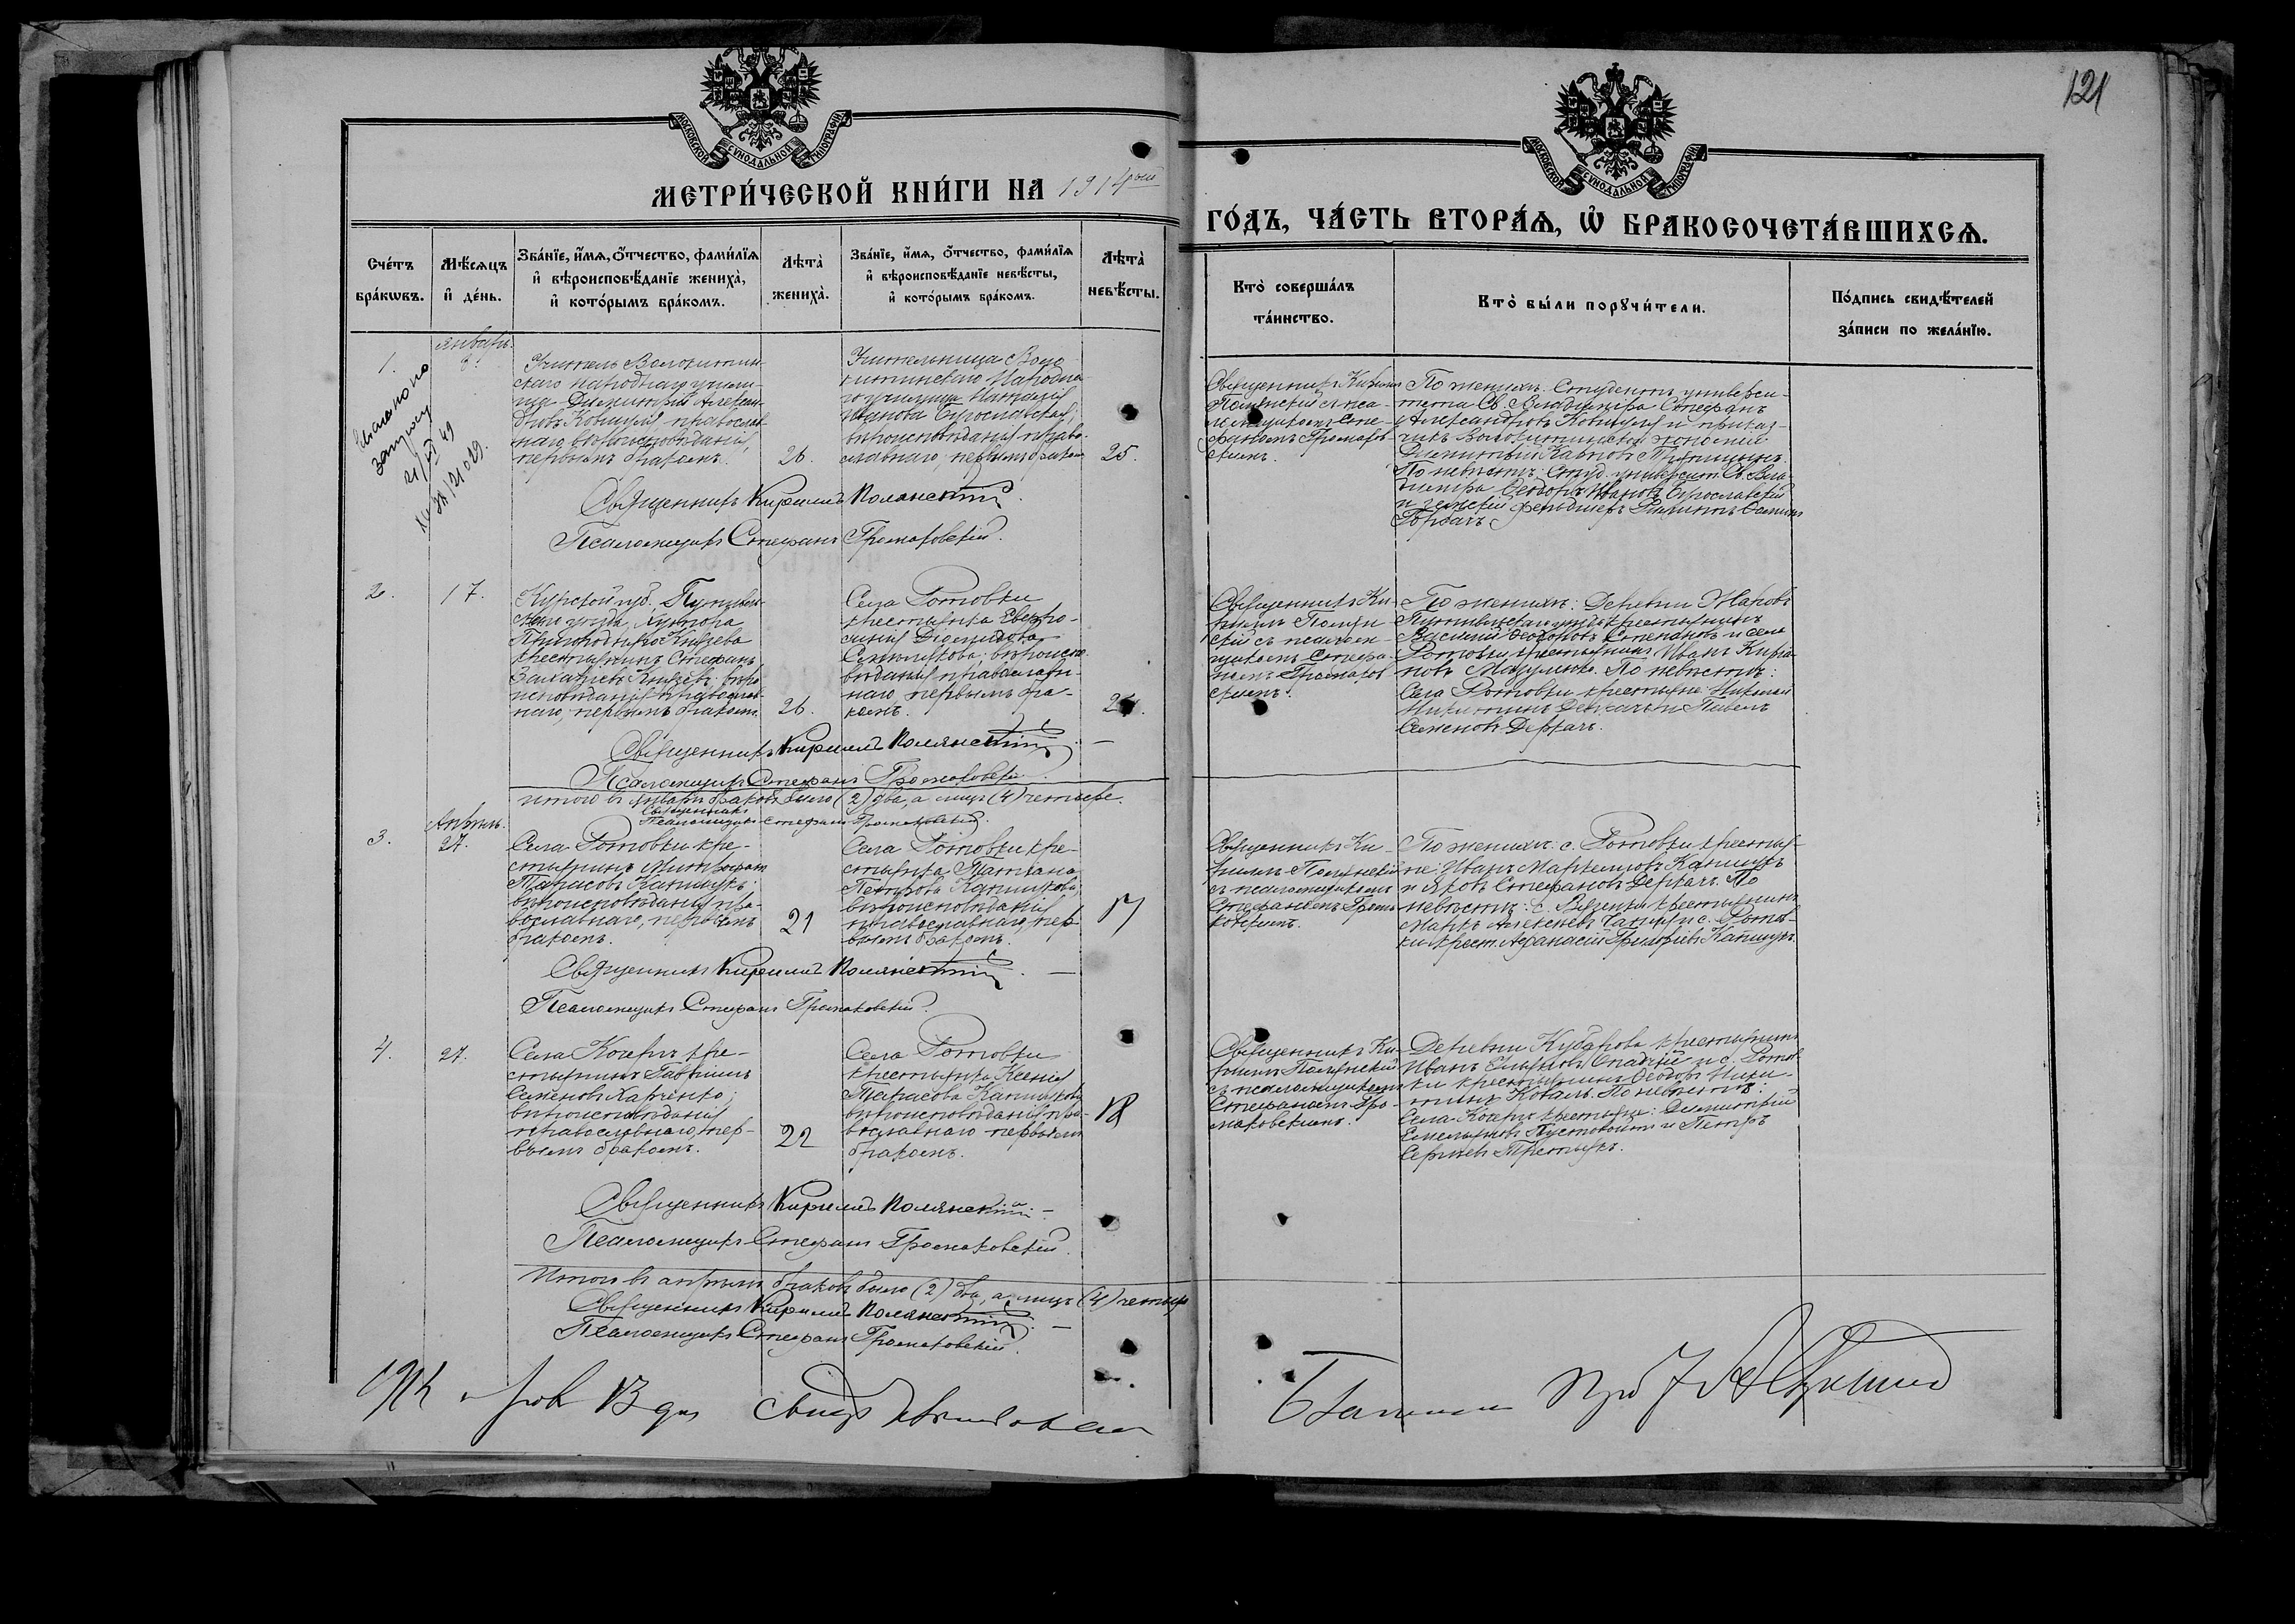 121
МОСКОВСКОЙ СѴНОДАЛЬНОЙ ТИПОГРАФІИ
МОСКОВСКОЙ СѴНОДАЛЬНОЙ ТИПОГРАФІИ
МЕТРИ́ЧЕСКОЙ КНИ́ГИ НА 1914рый
ГО́ДЪ, ЧА́СТЬ ВТОРА́Ѧ, Ѡ҆ БРАКОСОЧЕТА́ВШИХСѦ.
Сче́тъ бра́кѡвъ.
Мѣ́сѧцъ и҆ де́нь.
Зва́нїе, и҆́мѧ, ѻ҆́тчество, фами́лїѧ
и҆ вѣроисповѣ́данїе жениха̀,
и҆ кото́рымъ бра́комъ.
Лѣта̀ жениха̀.
Зва́нїе, и҆́мѧ, ѻ҆́тчество, фами́лїѧ
и҆ вѣроисповѣ́данїе невѣ́сты,
и҆ кото́рымъ бра́комъ.
Лѣта̀ невѣ́сты.
Кто̀ соверша́лъ
та́инство.
Кто̀ бы́ли порꙋчи́тели.
По́дпись свидѣ́телей
за́писи по жела́нїю.
Январь.
1.
8.
Учитель Волокитин-
скаго народнаго учили-
ща Димитрій Алексан-
дровъ православ-
наго вѣроисповѣданія,
первымъ бракомъ.
26
Учительница Воло-
китинскаго Народна-
го училища
Иванова Бугославская,
вѣроисповѣданія право-
славнаго, первымъ бракомъ
25.
Священникъ Кириллъ
Полянскій съ пса-
ломщикомъ Сте-
фаномъ Громаков-
скимъ.
По женихѣ: Студентъ универси-
тета Св. Владиміра Стефанъ
Александровъ и приказ-
чикъ Волокитинской экономіи
Димитрій Павловъ
По невѣстѣ: Студ. университ. Св. Вла-
диміра Ѳеодоръ Ивановъ Бугославскій
и земскій фельдшеръ
Горбачъ
Священникъ Кириллъ Полянскій.
Псаломщикъ Стефанъ Громаковскій.
2.
17.
Курской губ. Путивль-
скаго уѣзда, хутора
Князева
крестьянинъ Стефанъ
Захаріевъ Князевъ, вѣро-
исповѣданія православ-
наго, первымъ бракомъ.
26.
Села Ротовки
крестьянка Евфро-
синія Діомидова
вѣроиспо-
вѣданія православ-
наго, первымъ бра-
комъ.
Священникъ Ки-
риллъ Полян-
скій съ псалом-
щикомъ Стефа-
номъ Громаков-
скимъ.
По женихѣ: Деревни
Путивльскаго уѣзда крестьянинъ
Василій Ѳеодоровъ Степановъ и села
Ротовки крестьянинъ Иванъ
Мазуленко. По невѣстѣ:
Села Ротовки крестьяне Николай
Никитинъ Деркачъ и Павелъ
Семеновъ Деркачъ.
Священникъ Кириллъ Полянскій
Псаломщикъ Стефанъ Громаковскій.
Итого въ январѣ браковъ было (2) два, а лицъ (4) четыре.
Священникъ
Псаломщикъ Стефанъ Громаковскій.
Апрѣль.
3.
27.
Села Ротовки кре-
стьянинъ Митрофанъ
Тарасовъ Капшукъ,
вѣроисповѣданія пра-
вославнаго, первымъ
бракомъ.
21
Села Ротовки кре-
стьянка Татіана
Петрова Капшукова,
вѣроисповѣданія
православнаго, пер-
вымъ бракомъ.
17
Священникъ Ки-
риллъ Полянскій
съ псаломщикомъ
Стефаномъ Грома-
ковскимъ.
По женихѣ: с. Ротовки крестья-
не: Иванъ Маркелловъ Капшукъ
и Яковъ Стефановъ Деркачъ. По
невѣстѣ: с. крестьянинъ
Маркъ Алексѣевъ и с. Ротов-
ки крест. Аѳанасій Григоріевъ Капшукъ.
Священникъ Кириллъ Полянскій.
Псаломщикъ Стефанъ Громаковскій.
4.
27.
Села Кочергъ кре-
стьянинъ Гавріилъ
Семеновъ Харченко,
вѣроисповѣданія
православнаго, пер-
вымъ бракомъ.
22
Села Ротовки
крестьянка Ксенія
Тарасова Капшукова
вѣроисповѣданія пра-
вославнаго первымъ
бракомъ.
18
Священникъ Ки-
риллъ Полянскій
съ псаломщикомъ
Стефаномъ Гро-
маковскимъ.
Деревни Кубарова крестьянинъ
Иванъ и с. Ротов-
ки крестьянинъ Ѳеодоръ Ники-
тинъ Коваль. По невѣстѣ:
Села Кочергъ крестьяне: Димитрій
Емельяновъ Пустовойтъ и Петръ
Сергѣевъ Третьякъ.
Священникъ Кириллъ Полянскій
Псаломщикъ Стефанъ Громаковскій.
Итого въ апрѣлѣ браковъ было (2) два, а лицъ (4) четыре
Священникъ Кириллъ Полянскій.
Псаломщикъ Стефанъ Громаковскій.
1914